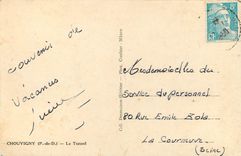 Souvenir de
Vacances
CHOUVIGNY (P.-de-D.) — Le Tunnel
Mesdemoiselles du
Service du personnel
80 Rue Emile Zola
La Courneuve
(Seine)